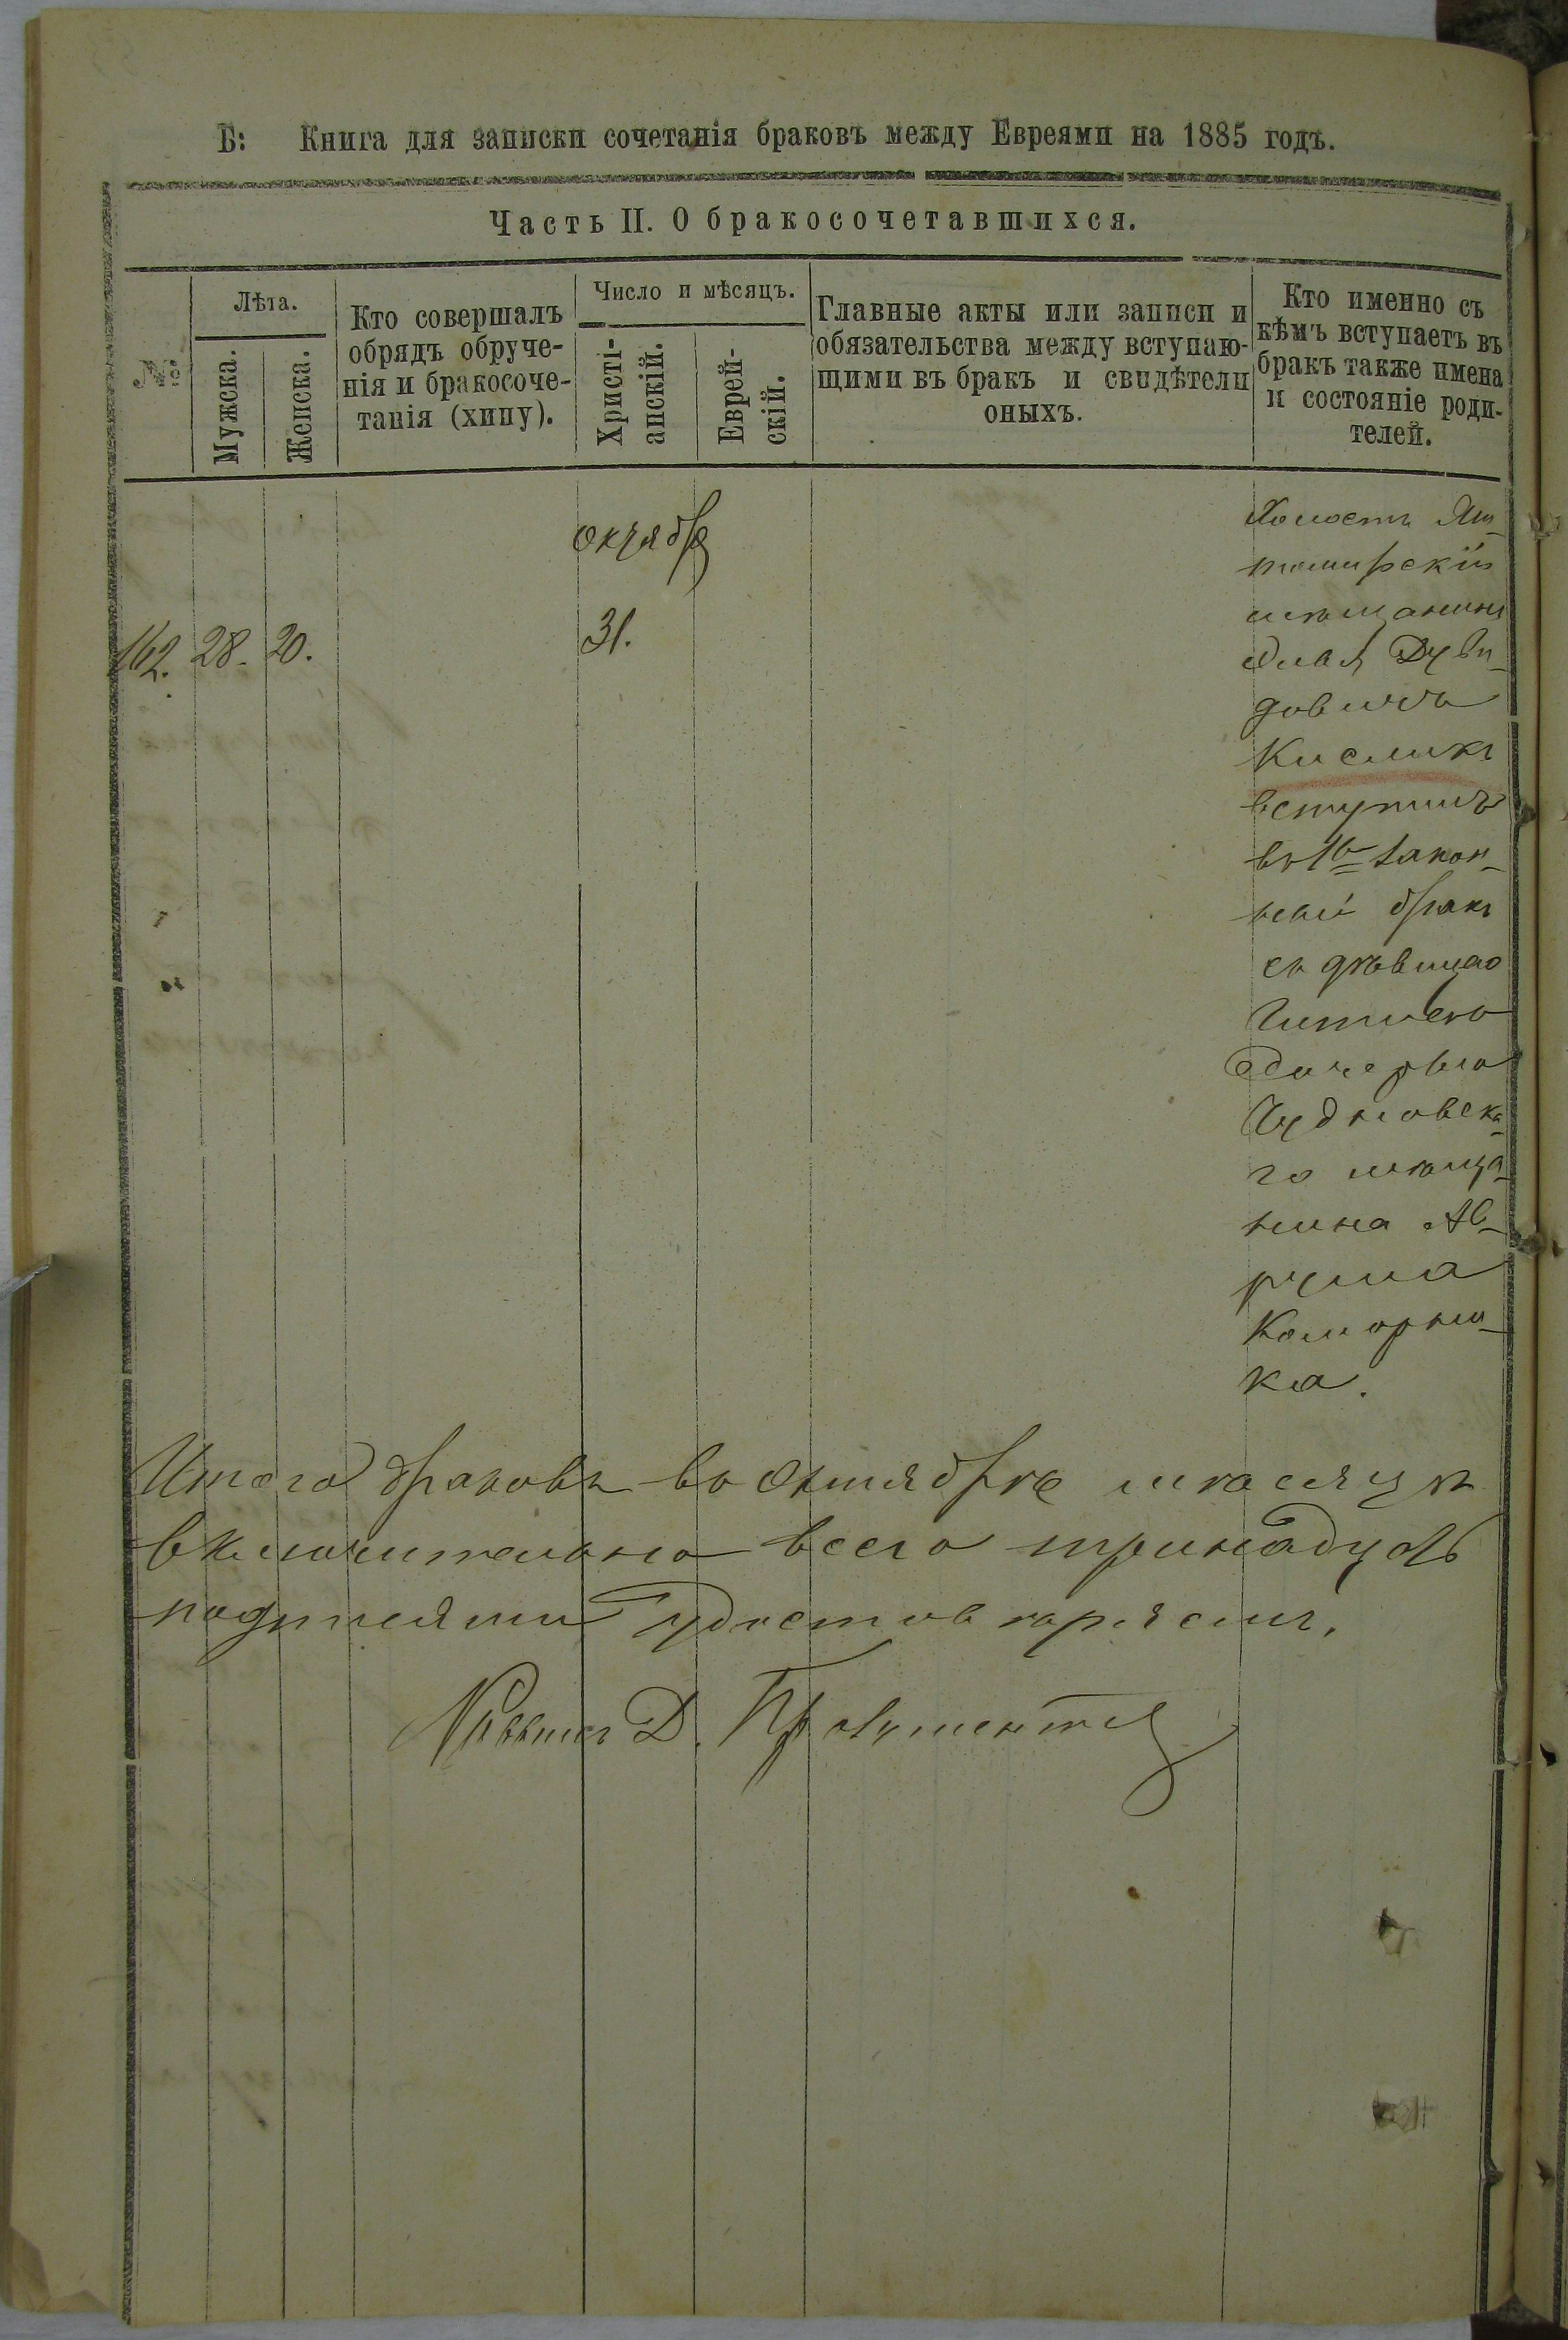 Б: Книга для записки сочетанія браковъ между Евреями на 1885 годъ.
Часть II. О бракосочетавшихся.
№
Лѣта.
Мужска.
Женска.
Кто совершалъ
обрядъ обруче-
нія и бракосоче-
танія (хипу).
Число и мѣсяцъ.
Христі-
анскій.
Еврей-
скій.
Главные акты или записи и
обязательства между вступаю-
щими въ бракъ и свидѣтели
оныхъ.
Кто именно съ
кѣмъ вступаетъ въ
бракъ также имена
и состояніе роди-
телей.
октября
162. 28. 20. 31.
Холостъ Жи-
томирскій
мѣщанинъ
Дуви-
довичъ
Кисликъ
вступилъ
въ 1й закон-
ный бракъ
съ дѣвицею
Гитлею
дочерью
Чудновска-
го мѣща-
нина Ав-
рума
Коморни-
ка.
Итого браковъ въ Октябрѣ мѣсяцѣ
включительно всего тринадцать
подписями удостовѣряемъ.
Раввинъ Д.